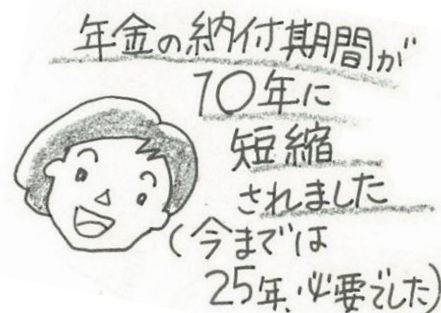 年金の納付期間が
10年に
短縮
されました
(今までは
25年、必要でした)